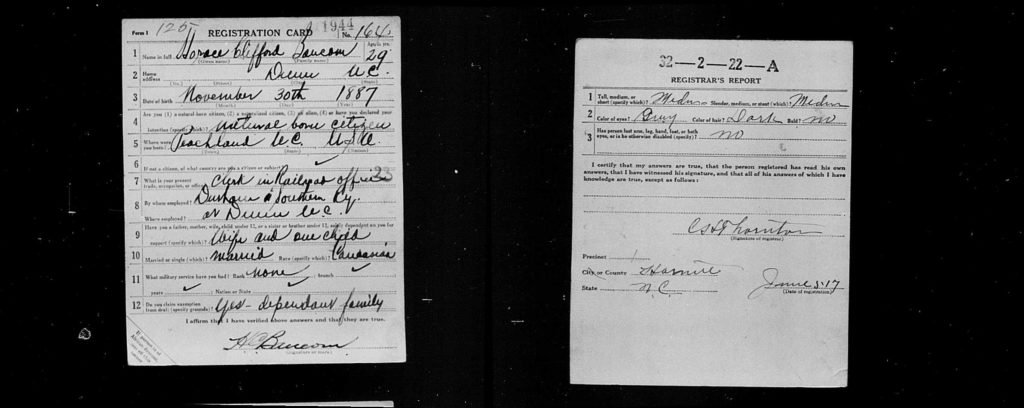 Form 1 125 REGISTRATION CARD 1944 No. 164
1 Name in full Horace Clifford Baucom Age in yrs. 29
(Given name) (Family name)
2 Home address Dunn N.C.
(No.) (Street) (City) (State)
3 Date of birth November 30th 1887
(Month) (Day) (Year)
4 Are you (1) a natural-born citizen, (2) a naturalized citizen, (3) an alien, (4) or have you declared your
intention (specify which)? natural born citizen
5 Where were you born? Peachland N.C. U.S.A.
(Town) (State) (Nation)
6 If not a citizen, of what country are you a citizen or subject?
7 What is your present trade, occupation, or office? Clerk in Railroad office 33
8 By whom employed? Durham & Southern Ry.
Where employed? at Dunn N.C.
9 Have you a father, mother, wife, child under 12, or a sister or brother under 12, solely dependent on you for
support (specify which)? Wife and one child
10 Married or single (which)? married Race (specify which)? Caucasian
11 What military service have you had? Rank none ; branch
years ; Nation or State
12 Do you claim exemption from draft (specify grounds)? Yes - dependant family
I affirm that I have verified above answers and that they are true.
H C Baucom
(Signature or mark)
32-2-22-A
REGISTRAR'S REPORT
1 Tall, medium, or short (specify which)? Medium Slender, medium, or stout (which)? Medium
2 Color of eyes? Grey Color of hair? Dark Bald? No
3 Has person lost arm, leg, hand, foot, or both
eyes, or is he otherwise disabled (specify)? no
I certify that my answers are true, that the person registered has read his own
answers, that I have witnessed his signature, and that all of his answers of which I have
knowledge are true, except as follows:
Thornton
(Signature of registrar)
Precinct 1
City or County Harnett
State N.C. June 5-17
(Date of registration)